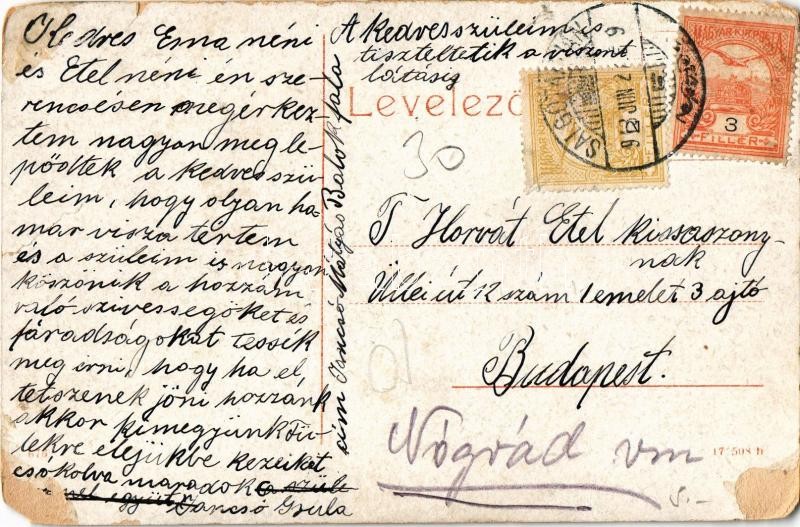 Kedves Erna néni
és Etel néni én sze-
rencsésen megérkez
tem nagyon megle
pödtek a kedves szü
leim, hogy olyan ha-
mar visza tertem
és a szüleim is nagyon
köszönik a hozzám
való szivessegöket és
fáradságokat tessék
meg irni, hogy ha el
tetszenek jöni hozzánk
akkor kimegyünk Fü
lekre elejükbe kezeiket
csókolva maradok
Jancsó Gyula
cim Jancsó Mátyás Balók fala
A kedves szüleim is
tiszteltetik a viszont
látásig
Levelező
30
MAGYAR KIR. POSTA
3
FILLÉR
SALGÓ
JUN
T Horvát Etel kissaszony-
nak
Üllei út 12 szám 1 emelet 3 ajtó
Budapest.
Nógrád vm
17*508 b
5.-